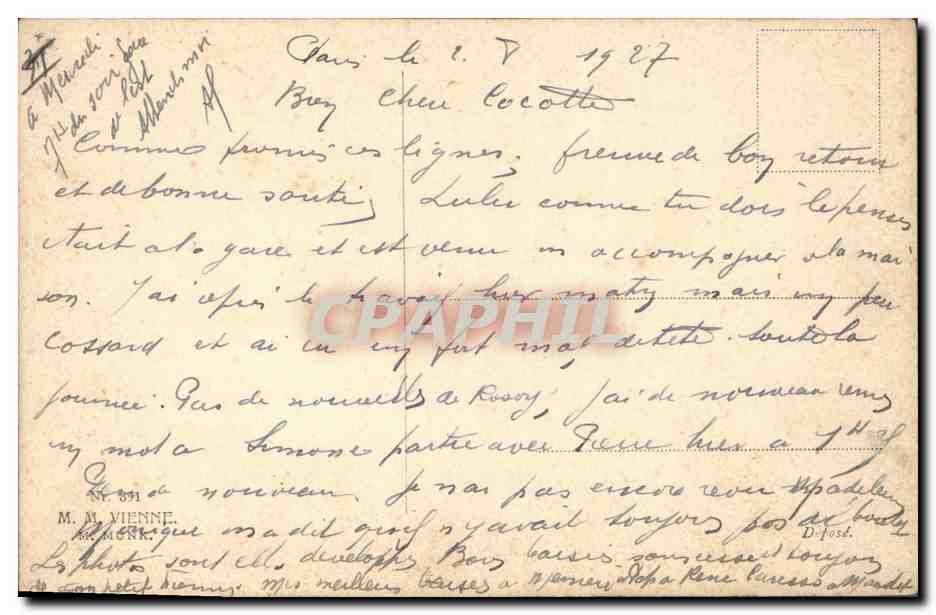 Paris le 2. V 1927
Bien Chère Cocotte
à Mercredi
7h du soir gare
de l'est
attends moi
Comme promis ces lignes, preuve de bon retour
et de bonne santé, Lulu comme tu dois le penser
était à la gare et est venu m accompagner à la mai
son. J'ai repris le travail hier matin mais un peu
cossard et ai eu un fort mal de tête toute la
journée. Pas de nouvelles de Rosoy, j'ai de nouveau remis
un mot à Simone partie avec Pierre hier à 1H
de nouveau. Je n'ai pas encore revu Madeleine
Monique m'a dit qu'il n'y avait toujours pas de
Les photos sont elles développées Bons baisers toujours
de ton petit Mes meilleurs baisers à René Caresses à
CPAPHIL
Nr. 891
M. M. VIENNE.
M. MUNK.
Déposé.